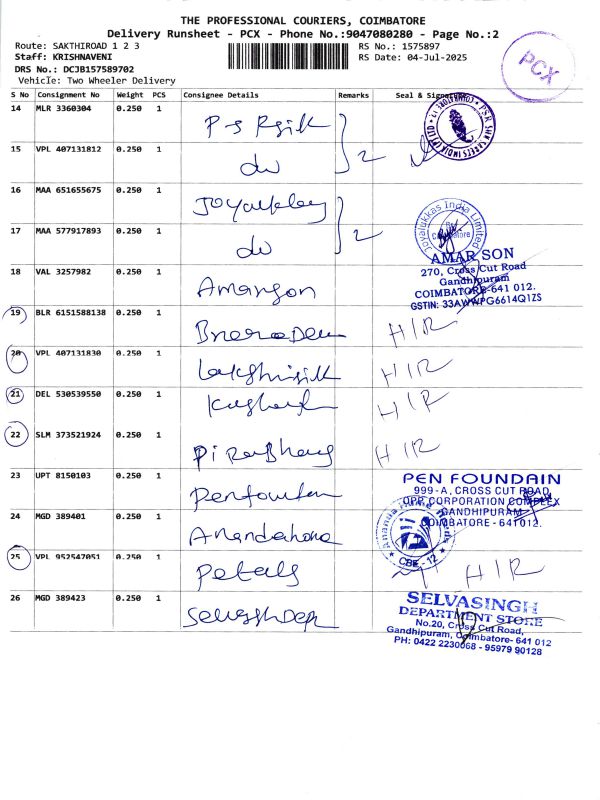 THE PROFESSIONAL COURIERS, COIMBATORE
Delivery Runsheet - PCX - Phone No.:9047080280 - Page No.:2
Route: SAKTHIROAD 1 2 3
RS No.: 1575897
Staff: KRISHNAVENI
RS Date: 04-Jul-2025
DRS No.: DCJB157589702
Vehicle: Two Wheeler Delivery
PCX
S No Consignment No Weight PCS Consignee Details Remarks Seal & Signature
14 MLR 3360304 0.250 1
15 VPL 407131812 0.250 1 do 2
16 MAA 651655675 0.250 1
Joyalukkas India Limited
17 MAA 577917893 0.250 1 do 2
AMAR SON
270, Cross Cut Road
Gandhipuram
COIMBATORE-641 012.
GSTIN: 33AWWPG6614Q1ZS
18 VAL 3257982 0.250 1
19 BLR 6151588138 0.250 1 HIR
20 VPL 407131830 0.250 1 HIR
21 DEL 530539550 0.250 1 HIR
22 SLM 373521924 0.250 1 HIR
23 UPT 8150103 0.250 1
PEN FOUNDAIN
999-A, CROSS CUT ROAD,
OPP. CORPORATION COMPLEX
GANDHIPURAM
COIMBATORE - 641012.
24 MGD 389401 0.250 1
CBE - 12
25 VPL 952547051 0.250 1 Petals HIR
26 MGD 389423 0.250 1
SELVASINGH
DEPARTMENT STORE
No.20, Cross Cut Road,
Gandhipuram, Coimbatore- 641 012
PH: 0422 2230068 - 95979 90128